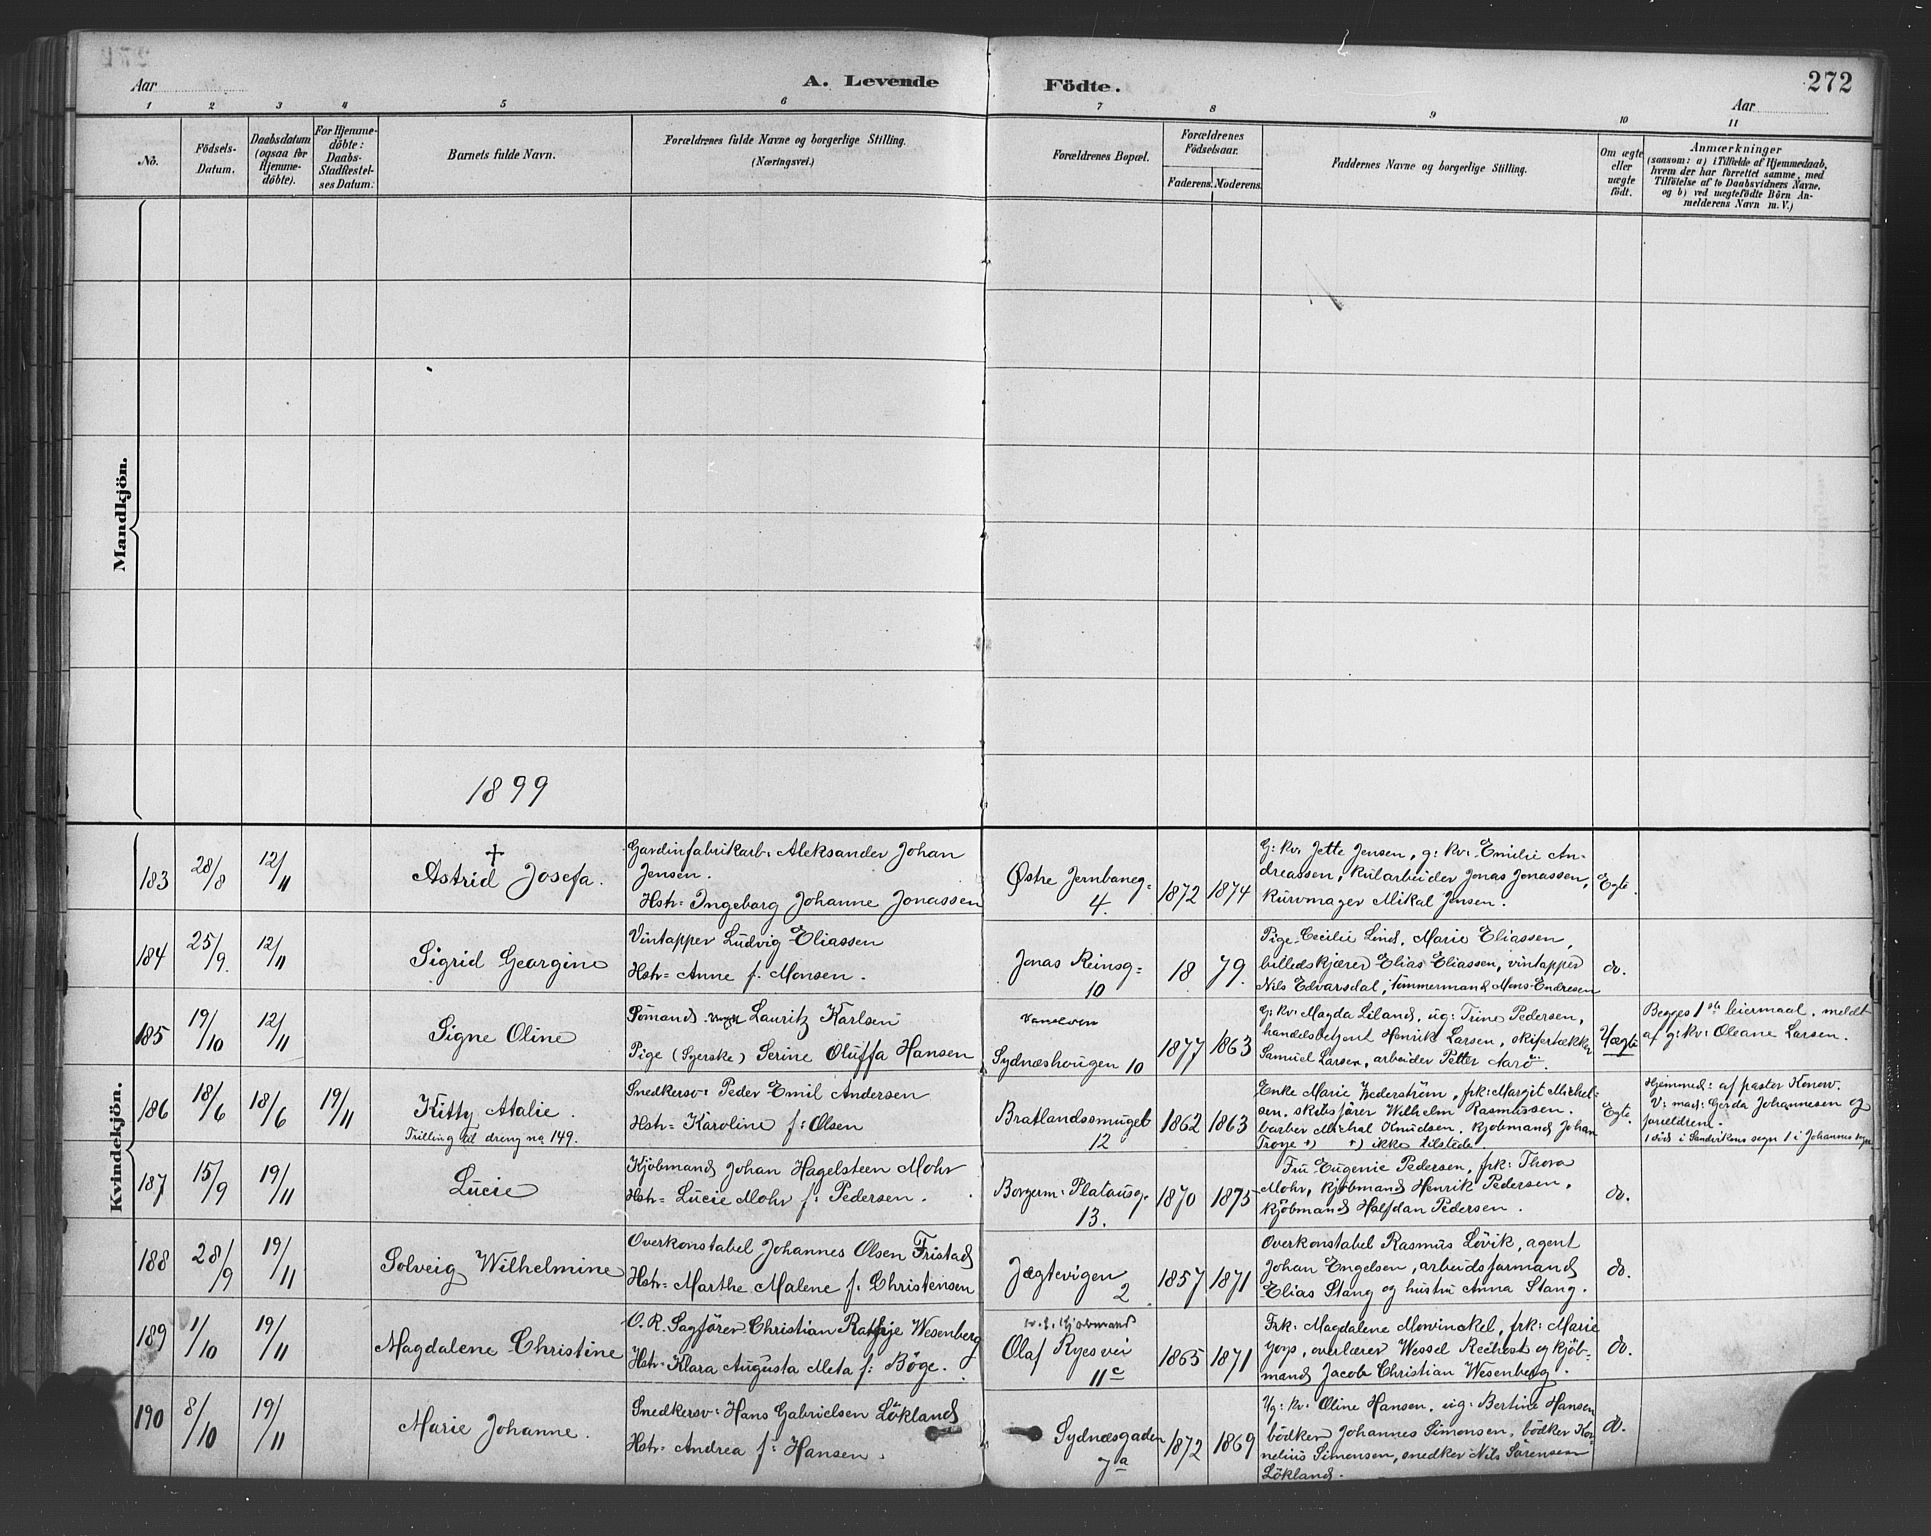 272
Aar
A. Levende Födte.
Aar
1 2 3 4 5 6 7 8 9 10 11
No.
Födsels-
Datum.
Daabsdatum
(ogsaa for
Hjemme-
döbte).
For Hjemme-
döbte:
Daabs-
Stadfæstel-
ses Datum.
Barnets fulde Navn.
Forældrenes fulde Navne og borgerlige Stilling.
(Næringsvei.)
Forældrenes Bopæl.
Forældrenes
Födselsaar.
Faderens. Moderens.
Faddernes Navne og borgerlige Stilling.
Om ægte
eller
uægte
födt.
Anmærkninger
(saasom: a) i Tilfælde af Hjemmedaab,
hvem der har forrettet samme, med
Tilföielse af to Daabsvidners Navne,
og b) ved uægtefödte Börn An-
melderens Navn m. V.)
Mandkjön.
1899
Kvindekjön.
183
28/8
12/11
✝
Astrid Josefa.
Gardinfabrikarb: Aleksander Johan
Jensen.
Hstr= Ingeborg Johanne Jonassen
Østre Jernbaneg=
4.
1872 1874
G: kv: Jette Jensen, g: kv: Emilie An-
dreassen, kularbeider Jonas Jonassen,
kurvmager Mikal Jensen.
Egte.
184
25/9.
12/11
Sigrid Georgine
Vintapper Ludvig Eliassen
Hstr= Anne f. Monsen.
Jonas Reinsg=
10
18 79.
Pige Cecilie Lind, Marie Eliassen,
billedskjærer Elias Eliassen, vintapper
Nils Edvarsdal, tømmermand Mons Endresen
do.
185
19/10
12/11
Signe Oline
Sømand Lauritz Karlsen
Pige (Syerske) Serine Oluffa Hansen
Sydnæshougen 10
1877 1863
G: kv: Magda Liland, ug: Trine Pedersen,
handelsbetjent Henrik Larsen, skifertækker
Samuel Larsen, arbeider Petter Aarø
Uægte
Begges 1ste leiermaal, meldt
af g: kv: Oleane Larsen.
186
18/6
18/6
19/11
Kitty Atalie.
Trilling til dreng no 149.
Snedkersv: Peder Emil Andersen
Hstr= Karoline f: Olsen
Bratlandssmuget
12
1862 1863
Enke Marie Wederstrøm, frk: Margit Mickel-
sen, skibsfører Wilhelm Rasmussen.
barber Michal Knudsen, kjøbmand Johan
Troye +) +) ikke tilstede.
Egte.
Hjemmed: af pastor Konow.
V: mad: Gerda Johannesen og
forældrene.
1 død i Sandvikens sogn 1 i Johannes sogn
187
15/9
19/11
Lucie
Kjøbmand Johan Hagelsteen Mohr
Hstr= Lucie Mohr f: Pedersen.
Borgerm: Platousg.
13.
1870 1875
Fru Eugenie Pedersen, frk: Thora
Mohr, kjøbmand Henrik Pedersen,
kjøbmand Halfdan Pedersen.
do.
188
28/9
19/11
Solveig Wilhelmine
Overkonstabel Johannes Olsen Fristad
Hstr= Marthe Malene f. Christensen
Jægtevigen
2
1857 1871
Overkonstabel Rasmus Løvik, agent
Johan Engelsen, arbeidsformand
Elias Stang og hustru Anna Stang.
do.
189
1/10
19/11
Magdalene Christine
O. R. Sagfører Christian Rathje Wesenberg
Hstr= Klara Augusta Meta f: Bøge.
Olaf Ryesvei
11c
1865 1871
Frk: Magdalene Mowinckel, frk: Marie
Joys, overlærer Wessel Reehorst og kjøb-
mand Jacob Christian Wesenberg.
do.
190
8/10
19/11
Marie Johanne.
Snedkersv: Hans Gabrielsen Løkland
Hstr= Andrea f: Hansen.
Sydnæsgaden
7a
1872 1869
Ug: kv: Oline Hansen, ug: Bertine Hansen
bødker Johannes Simonsen, bødker Kor-
nelius Simonsen, snedker Nils Sørensen
Løkland.
do.